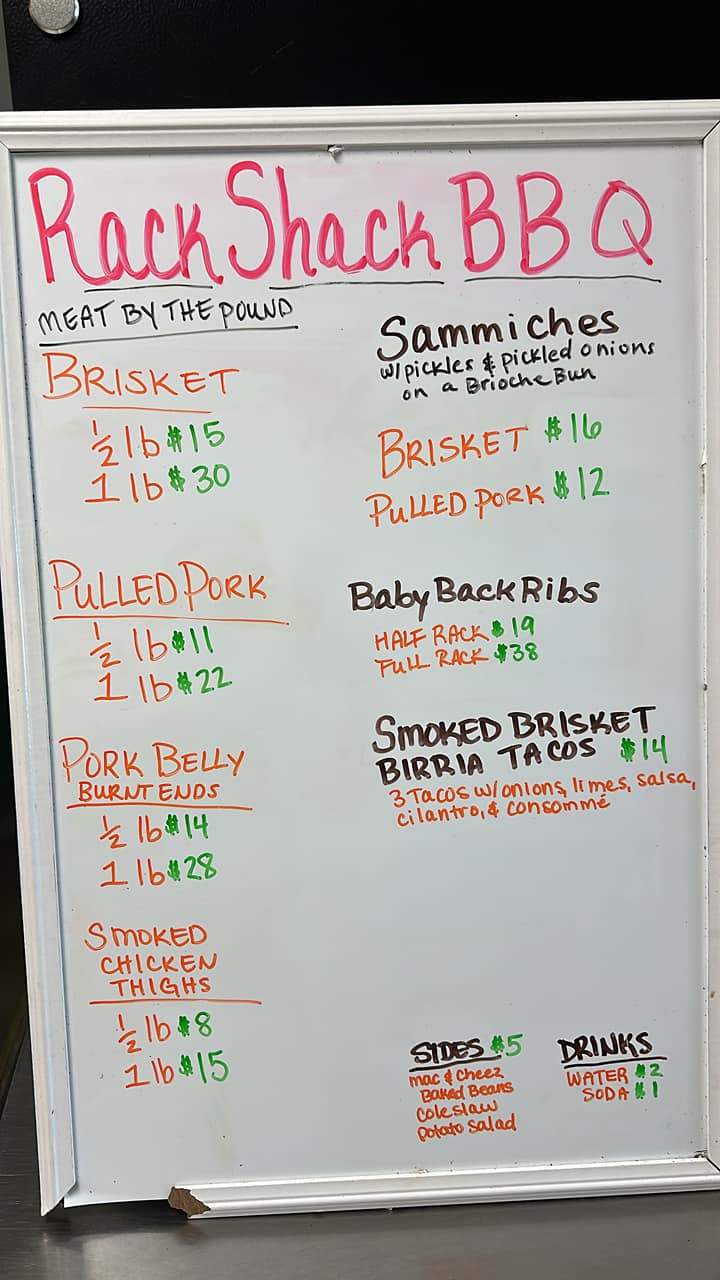 Rack Shack BBQ
MEAT BY THE POUND
BRISKET
½ lb $15
1 lb $30
PULLED PORK
½ lb $11
1 lb $22
PORK BELLY
BURNT ENDS
½ lb $14
1 lb $28
SMOKED
CHICKEN
THIGHS
½ lb $8
1 lb $15
Sammiches
w/pickles & pickled onions
on a Brioche Bun
BRISKET $16
PULLED PORK $12
Baby Back Ribs
HALF RACK $19
FULL RACK $38
SMOKED BRISKET
BIRRIA TACOS $14
3 Tacos w/onions, limes, salsa,
cilantro, & consommé
SIDES $5
mac & cheez
Baked Beans
coleslaw
potato salad
DRINKS
WATER $2
SODA $1